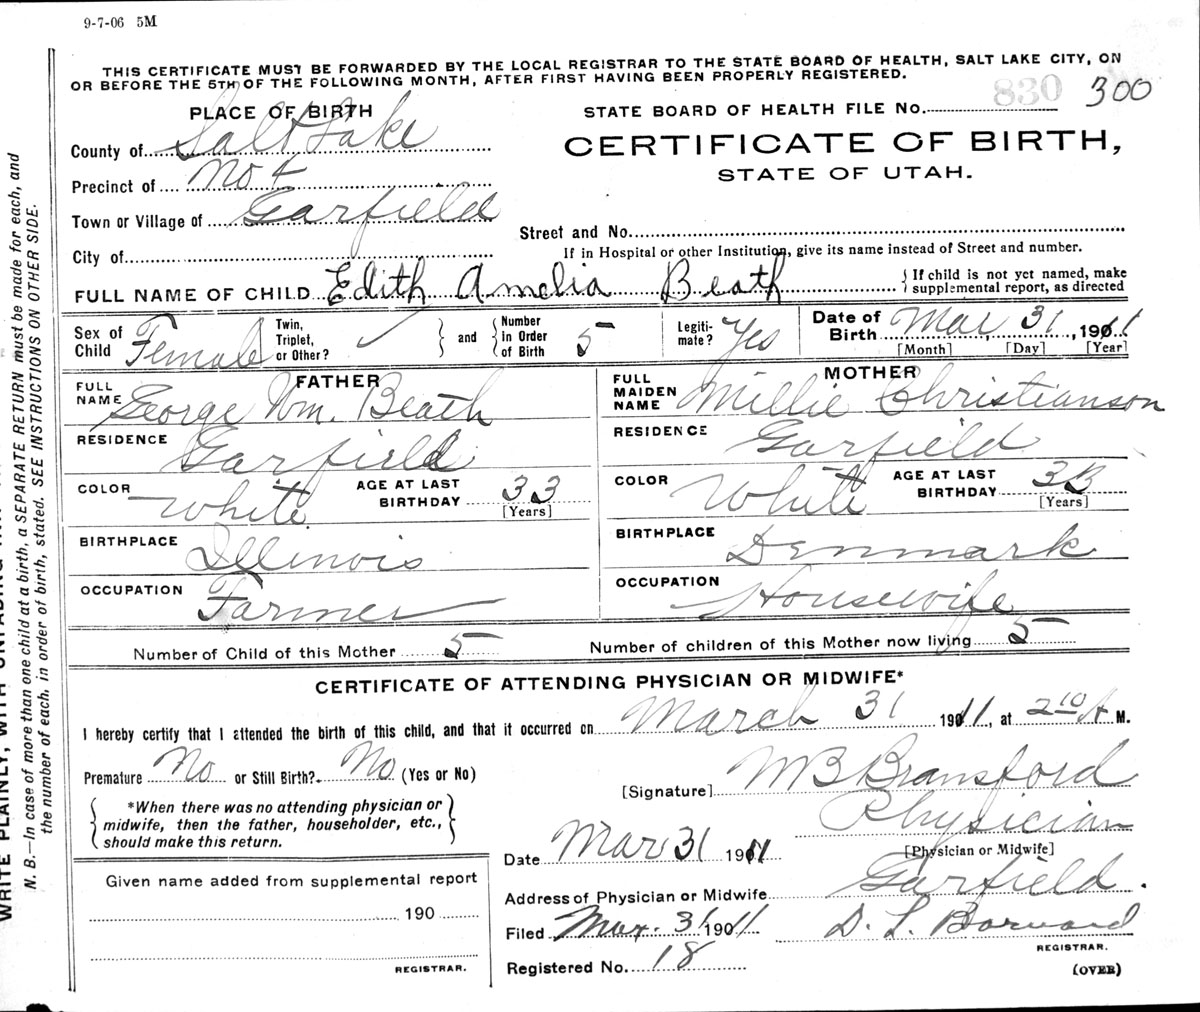 9-7-06 5M
THIS CERTIFICATE MUST BE FORWARDED BY THE LOCAL REGISTRAR TO THE STATE BOARD OF HEALTH, SALT LAKE CITY, ON
OR BEFORE THE 5TH OF THE FOLLOWING MONTH, AFTER FIRST HAVING BEEN PROPERLY REGISTERED.
PLACE OF BIRTH
STATE BOARD OF HEALTH FILE No. 830 300
County of Salt Lake
CERTIFICATE OF BIRTH,
STATE OF UTAH.
Precinct of No 4
Town or Village of Garfield
Street and No.
City of
If in Hospital or other Institution, give its name instead of Street and number.
FULL NAME OF CHILD Edith Amelia Beath
If child is not yet named, make
supplemental report, as directed
Sex of Child Female
Twin, Triplet, or Other? ✓ and Number in Order of Birth 5
Legitimate? Yes
Date of Birth Mar, 31, 1911
[Month] [Day] [Year]
FATHER
FULL NAME George Wm. Beath
RESIDENCE Garfield
COLOR White AGE AT LAST BIRTHDAY 33
[Years]
BIRTHPLACE Illinois
OCCUPATION Farmer
MOTHER
FULL MAIDEN NAME Millie Christianson
RESIDENCE Garfield
COLOR White AGE AT LAST BIRTHDAY 33
[Years]
BIRTHPLACE Denmark
OCCUPATION Housewife
Number of Child of this Mother 5 Number of children of this Mother now living 5
CERTIFICATE OF ATTENDING PHYSICIAN OR MIDWIFE*
I hereby certify that I attended the birth of this child, and that it occurred on March 31 1911, at 2 10 A M.
Premature No or Still Birth? No (Yes or No)
*When there was no attending physician or
midwife, then the father, householder, etc.,
should make this return.
[Signature] M B Bransford
Physician
[Physician or Midwife]
Date Mar 31 1911
Address of Physician or Midwife Garfield.
Filed Mar. 31 1911 D. L.
REGISTRAR.
Registered No. 18
(OVER)
Given name added from supplemental report
190
REGISTRAR.
N. B.—In case of more than one child at a birth, a SEPARATE RETURN must be made for each, and
the number of each, in order of birth, stated. SEE INSTRUCTIONS ON OTHER SIDE.
WRITE PLAINLY, WITH UNFADING